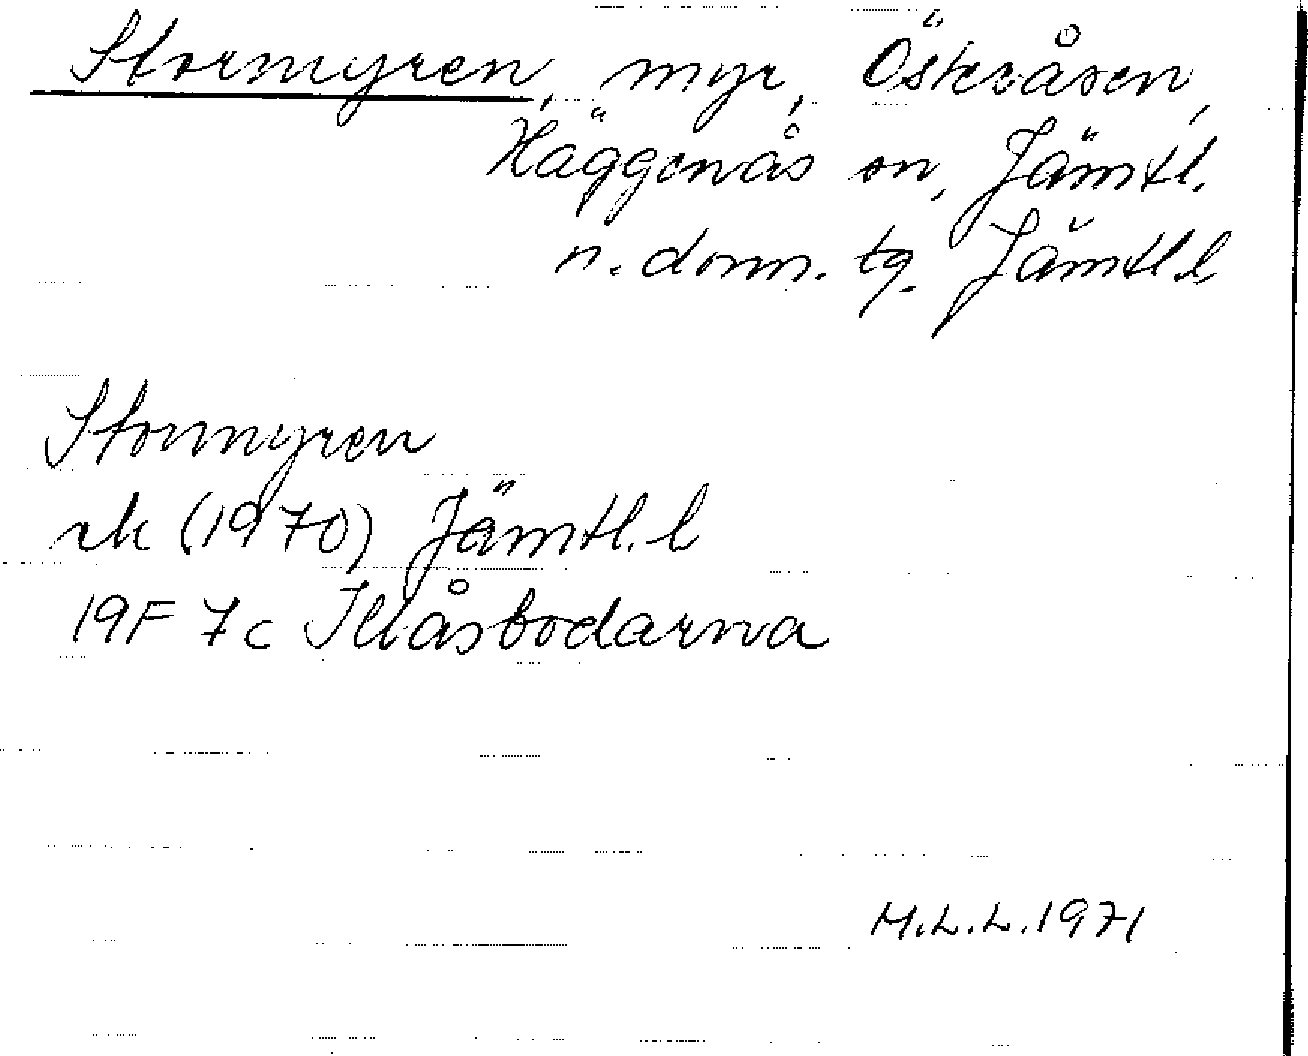 Stormyren, myr, Österåsen,
Häggenås sn, Jämtl.
n. doms. tg. Jämtl.l
Stormyren
rk (1970) Jämtl.l
19F 7c Illåsbodarna
M.L.L.1971